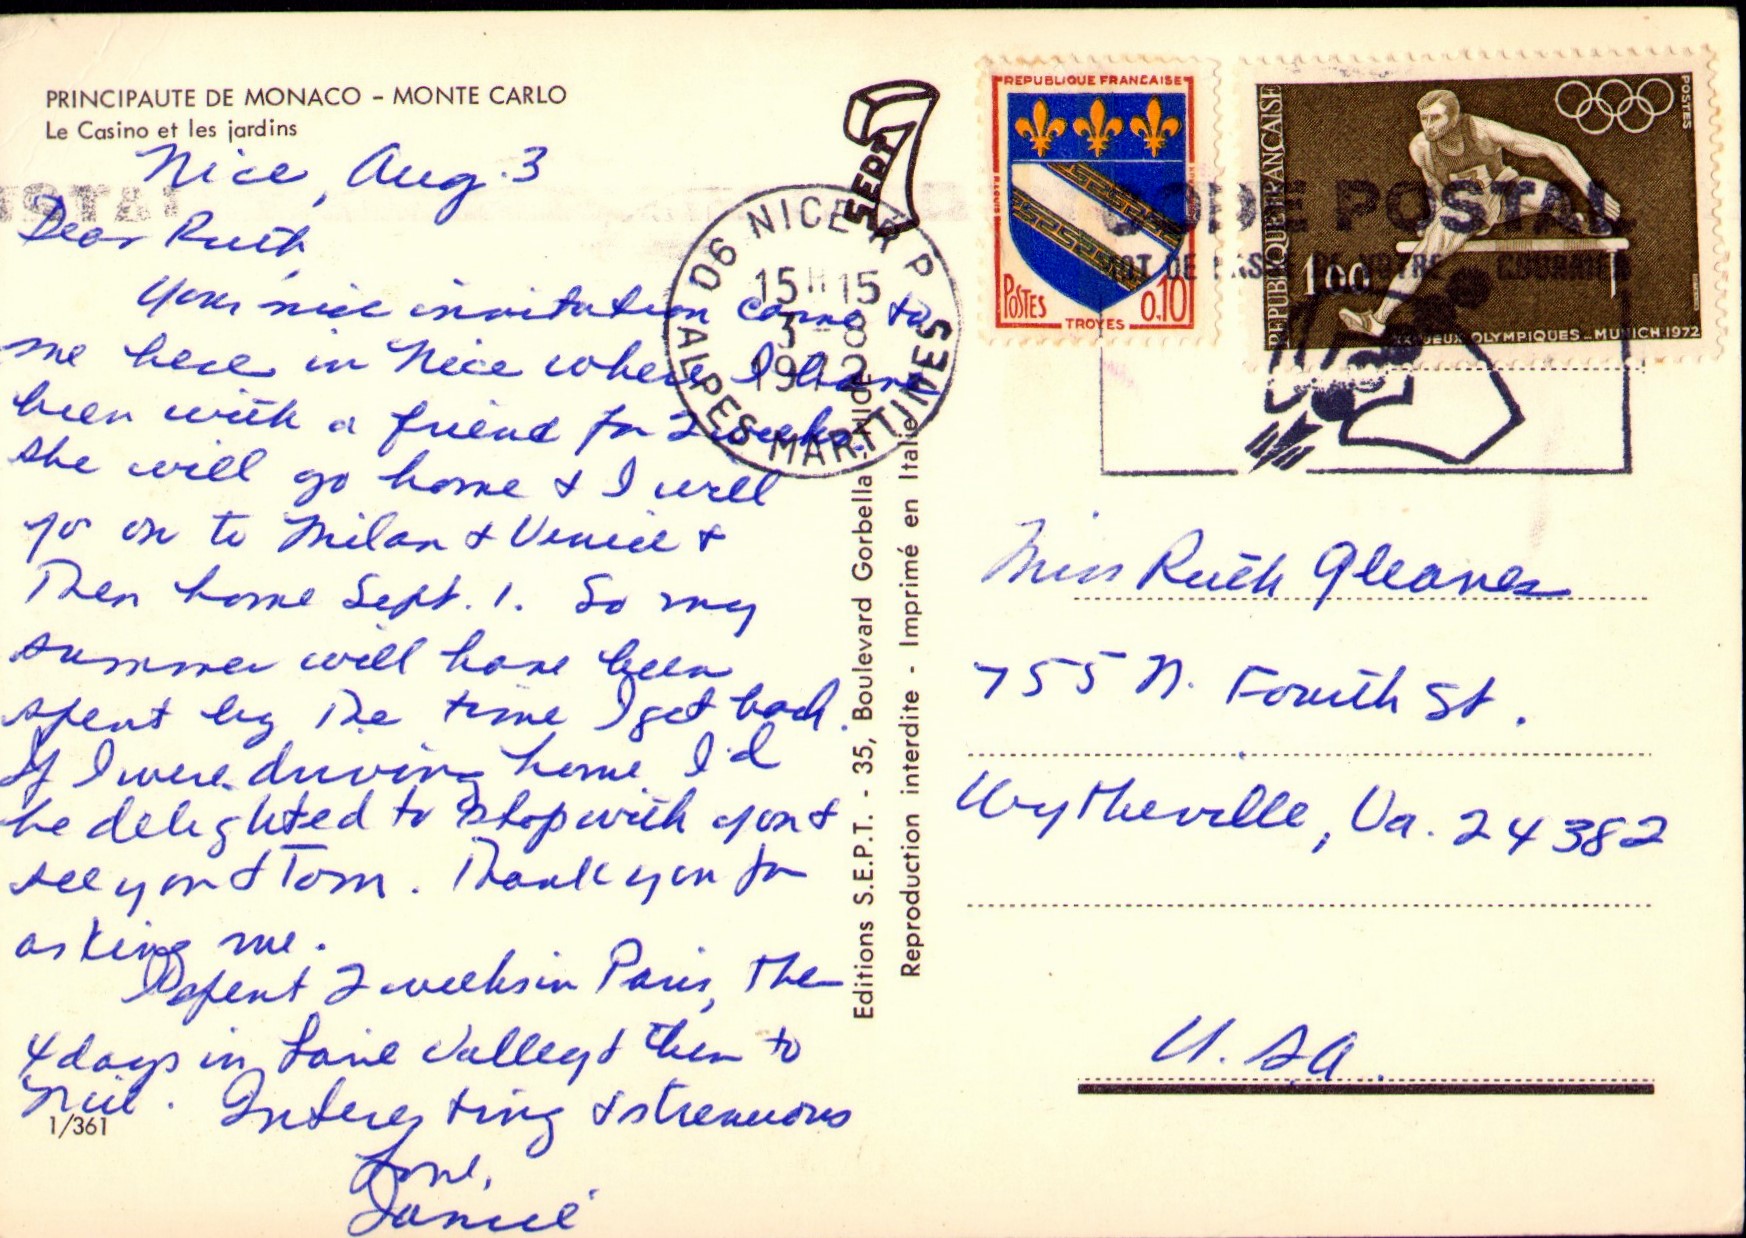 PRINCIPAUTE DE MONACO – MONTE CARLO
Le Casino et les jardins
Nice, Aug. 3
Dear Ruth,
Your nice invitation came to
me here in Nice where I have
been with a friend for 2 weeks.
She will go home & I will
go on to Milan & Venice &
then home Sept. 1. So my
summer will have been
spent by the time I get back.
If I were driving home I'd
be delighted to stop with you &
see you & Tom. Thank you for
asking me.
I spent 2 weeks in Paris, then
4 days in Loire Valley & then to
Nice. Interesting & strenuous
Love,
Janice
1/361
SEPT
Editions S.E.P.T. - 35, Boulevard Gorbella, NICE
Reproduction interdite - Imprimé en Italie
06 NICE R P
15H15
3-8
1972
ALPES-MARITIMES
REPUBLIQUE FRANCAISE
POSTES
0,10
TROYES
REPUBLIQUE FRANÇAISE
POSTES
1,00
XXes JEUX OLYMPIQUES _ MUNICH 1972
CODE POSTAL
MOT DE PASSE DE VOTRE COURRIER
Miss Ruth Gleaves
755 N. Fourth St.
Wytheville, Va. 24382
U.S.A.